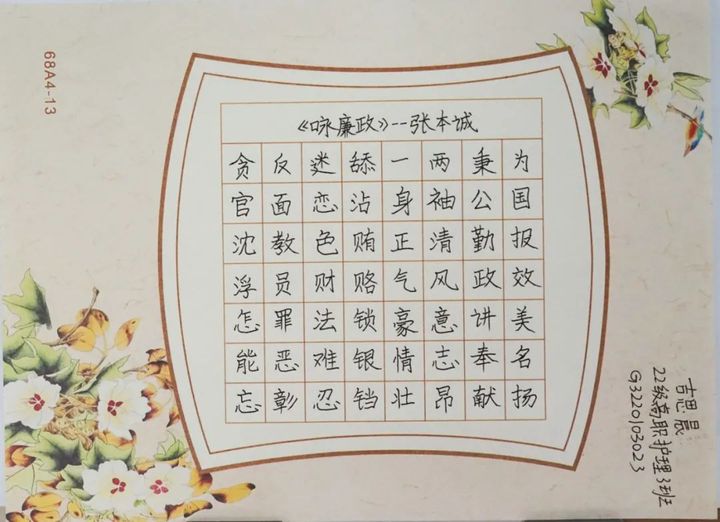 《咏廉政》--张本诚
为国报效美名扬
秉公勤政讲奉献
两袖清风意志昂
一身正气豪情壮
舔沾贿赂锁银铛
迷恋色财法难忍
反面教员罪恶彰
贪官沈浮怎能忘
吉思晨
22级高职护理3班
G3220103023
68A4-13